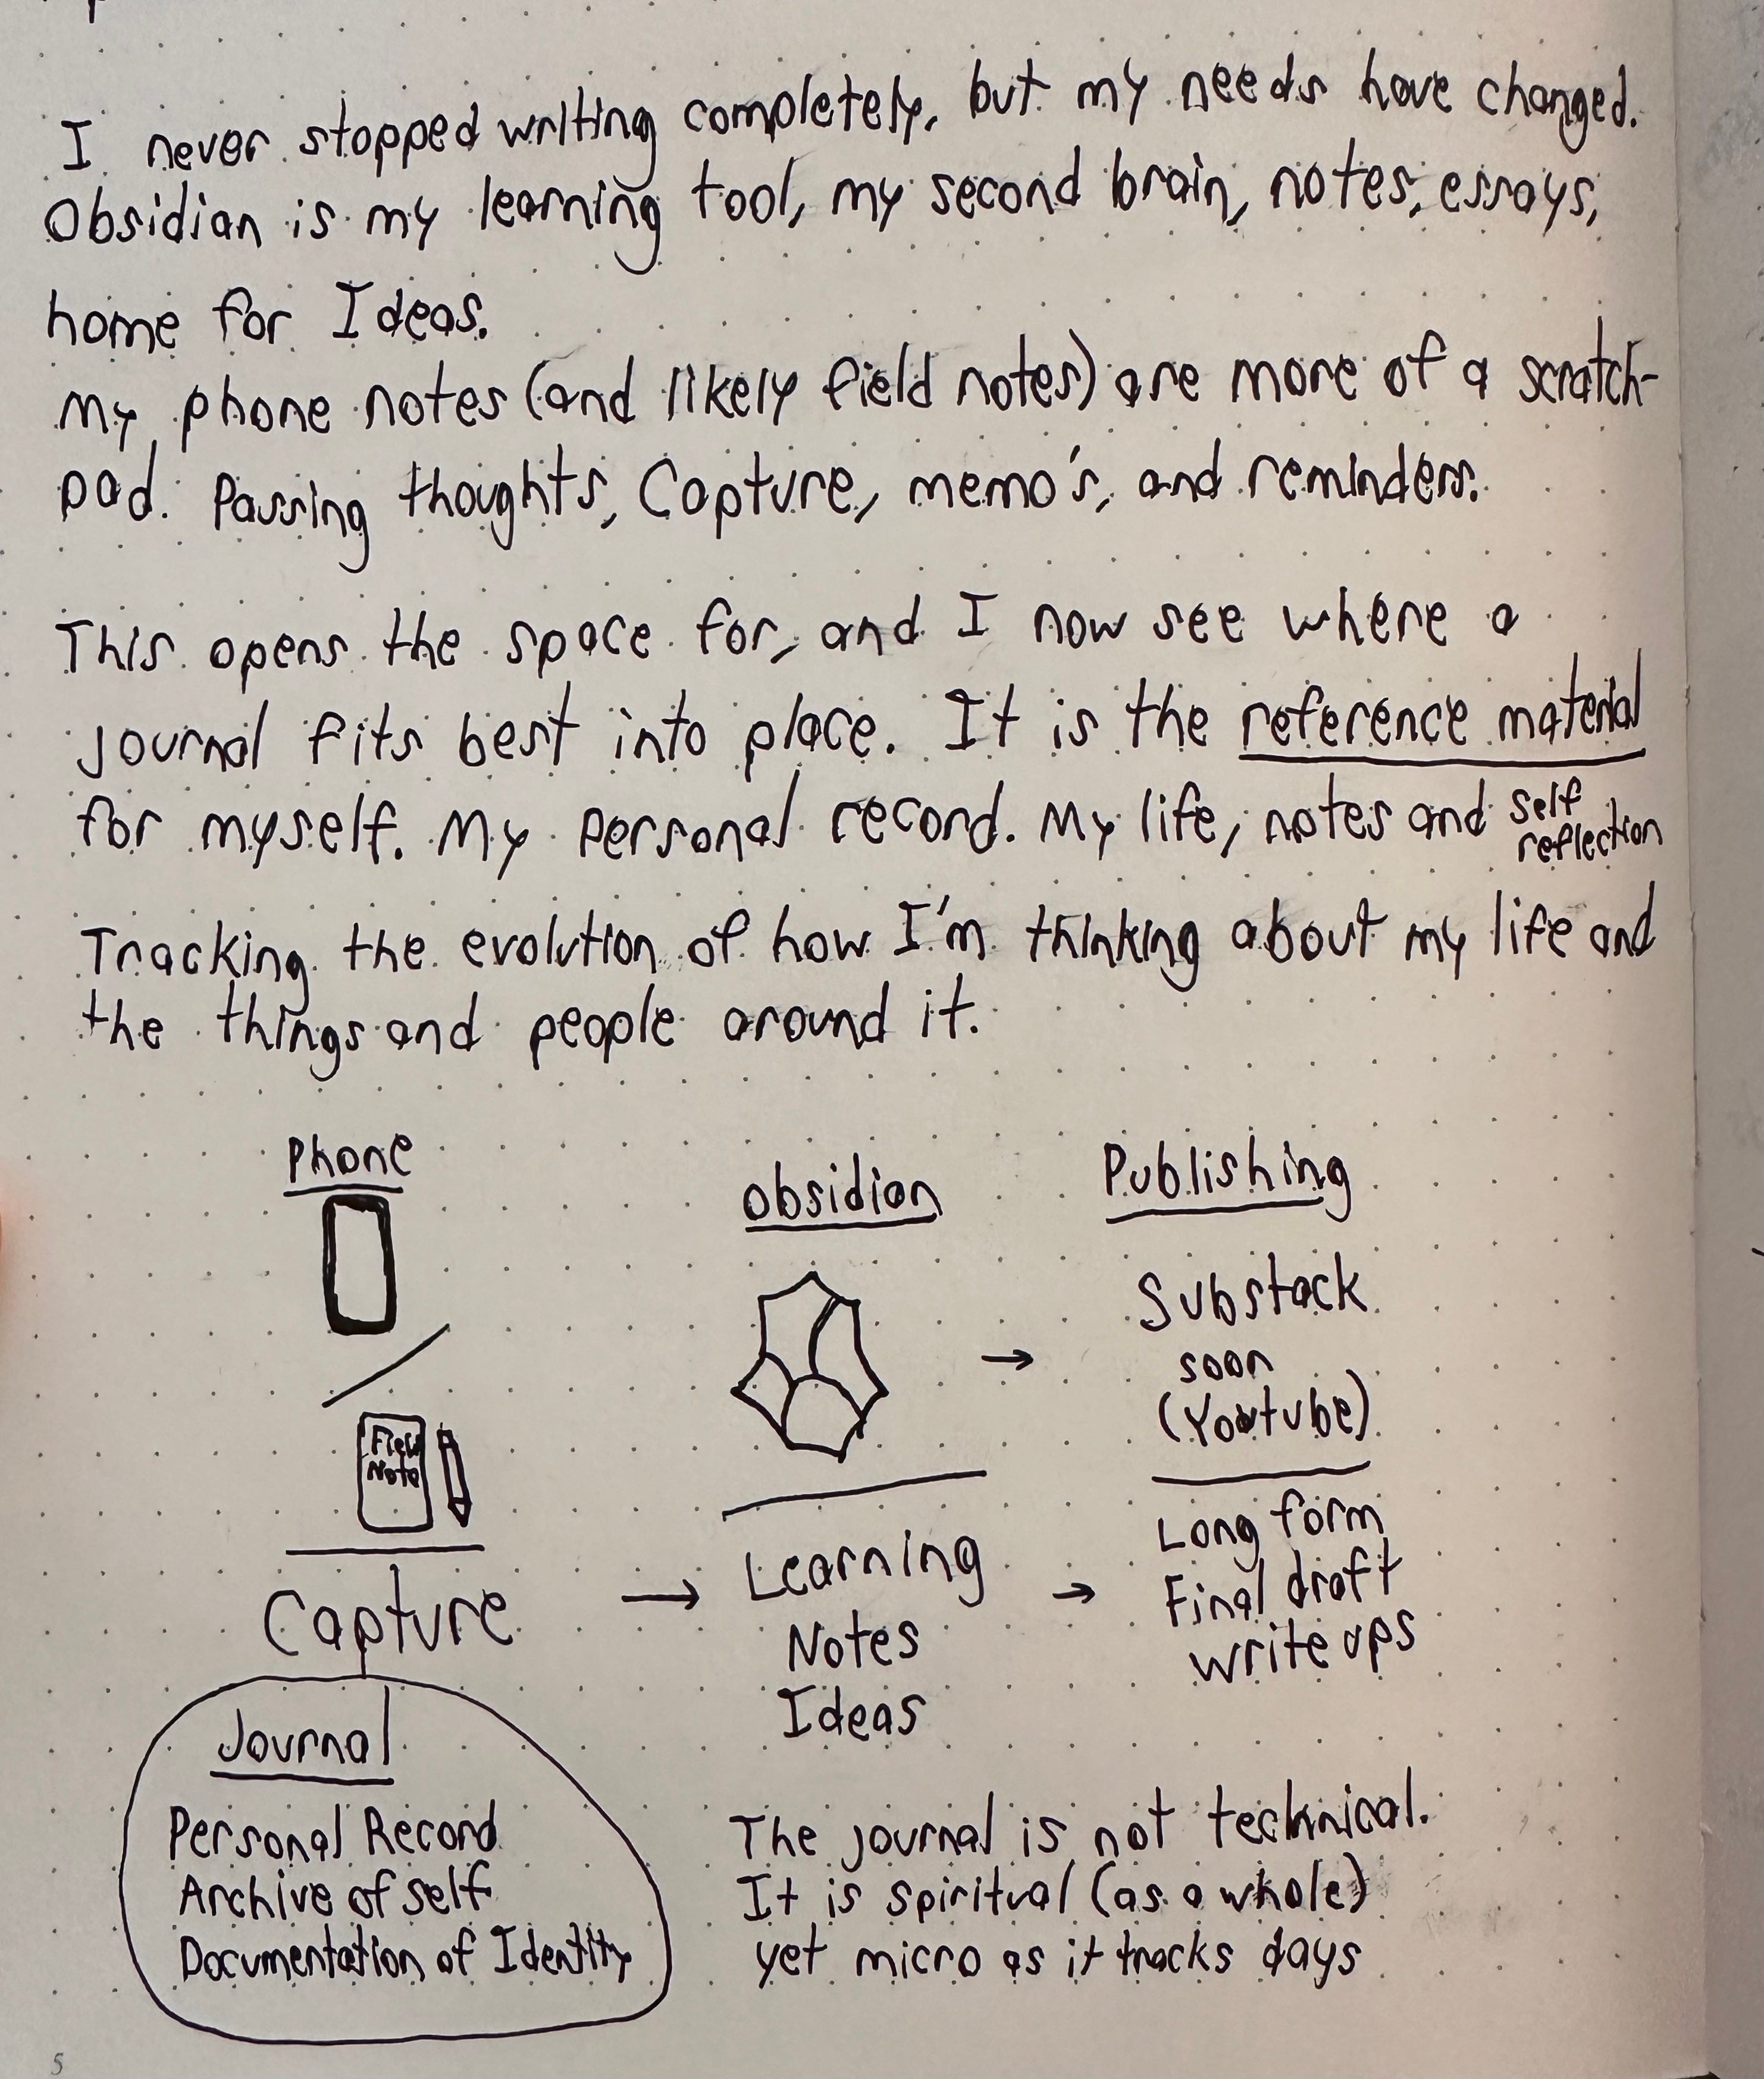 I never stopped writing completely, but my needs have changed.
Obsidian is my learning tool, my second brain, notes, essays,
home for Ideas.
My phone notes (and likely field notes) are more of a scratch-
pad. Passing thoughts, Capture, memo's, and reminders.
This opens the space for, and I now see where a
journal fits best into place. It is the reference material
for myself. My personal record. My life, notes and self
reflection
Tracking the evolution of how I'm thinking about my life and
the things and people around it.
Phone
Field
Note
Capture
→
Obsidian
Learning
Notes
Ideas
→
→
Publishing
Substack
soon
(Youtube)
Long form
Final draft
write ups
Journal
Personal Record
Archive of self
Documentation of Identity
The journal is not technical.
It is spiritual (as a whole)
yet micro as it tracks days
5